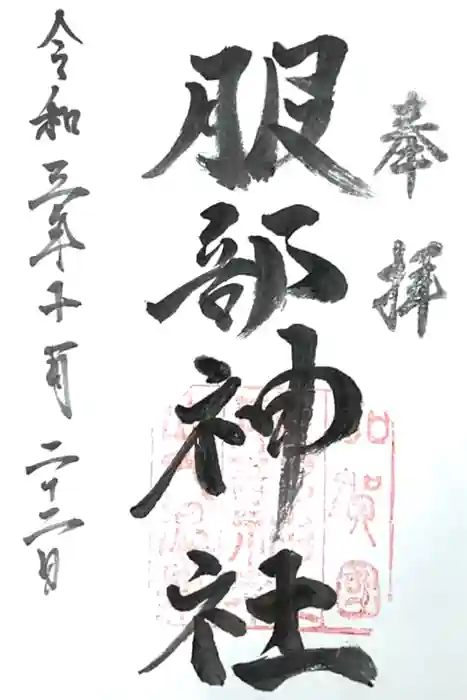 奉拝
服部神社
令和三年十一月二十二日
加賀國